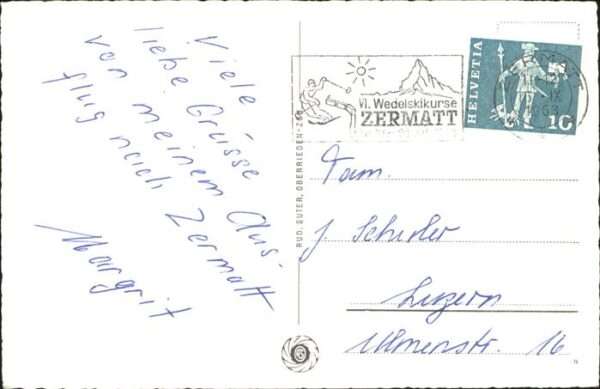 Viele
liebe Grüsse
von meinem Aus-
flug nach Zermatt
Margrit
VI. Wedelskikurse
ZERMATT
HELVETIA
10
RUD. SUTER, OBERRIEDEN-ZCH
Fam.
J. Schider
Luzern
Ulmenstr. 16